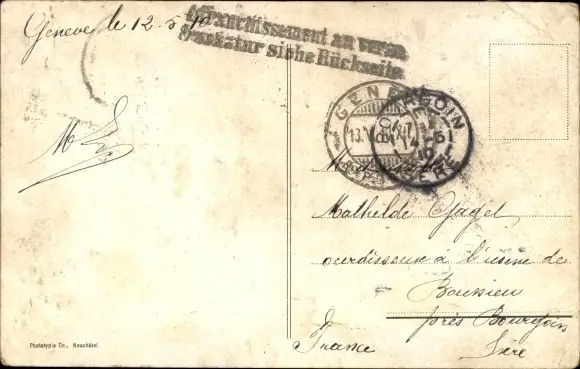 Genève le 12.5.10
Affranchissement au verso
Frankatur siehe Rückseite
GENÈVE
BOURGOIN
ISÈRE
M
Mademoiselle
Mathilde Gaget
ourdisseuse à l'usine de
Boussieu
près Bourgoin
Isère
France
Phototypie Co., Neuchâtel